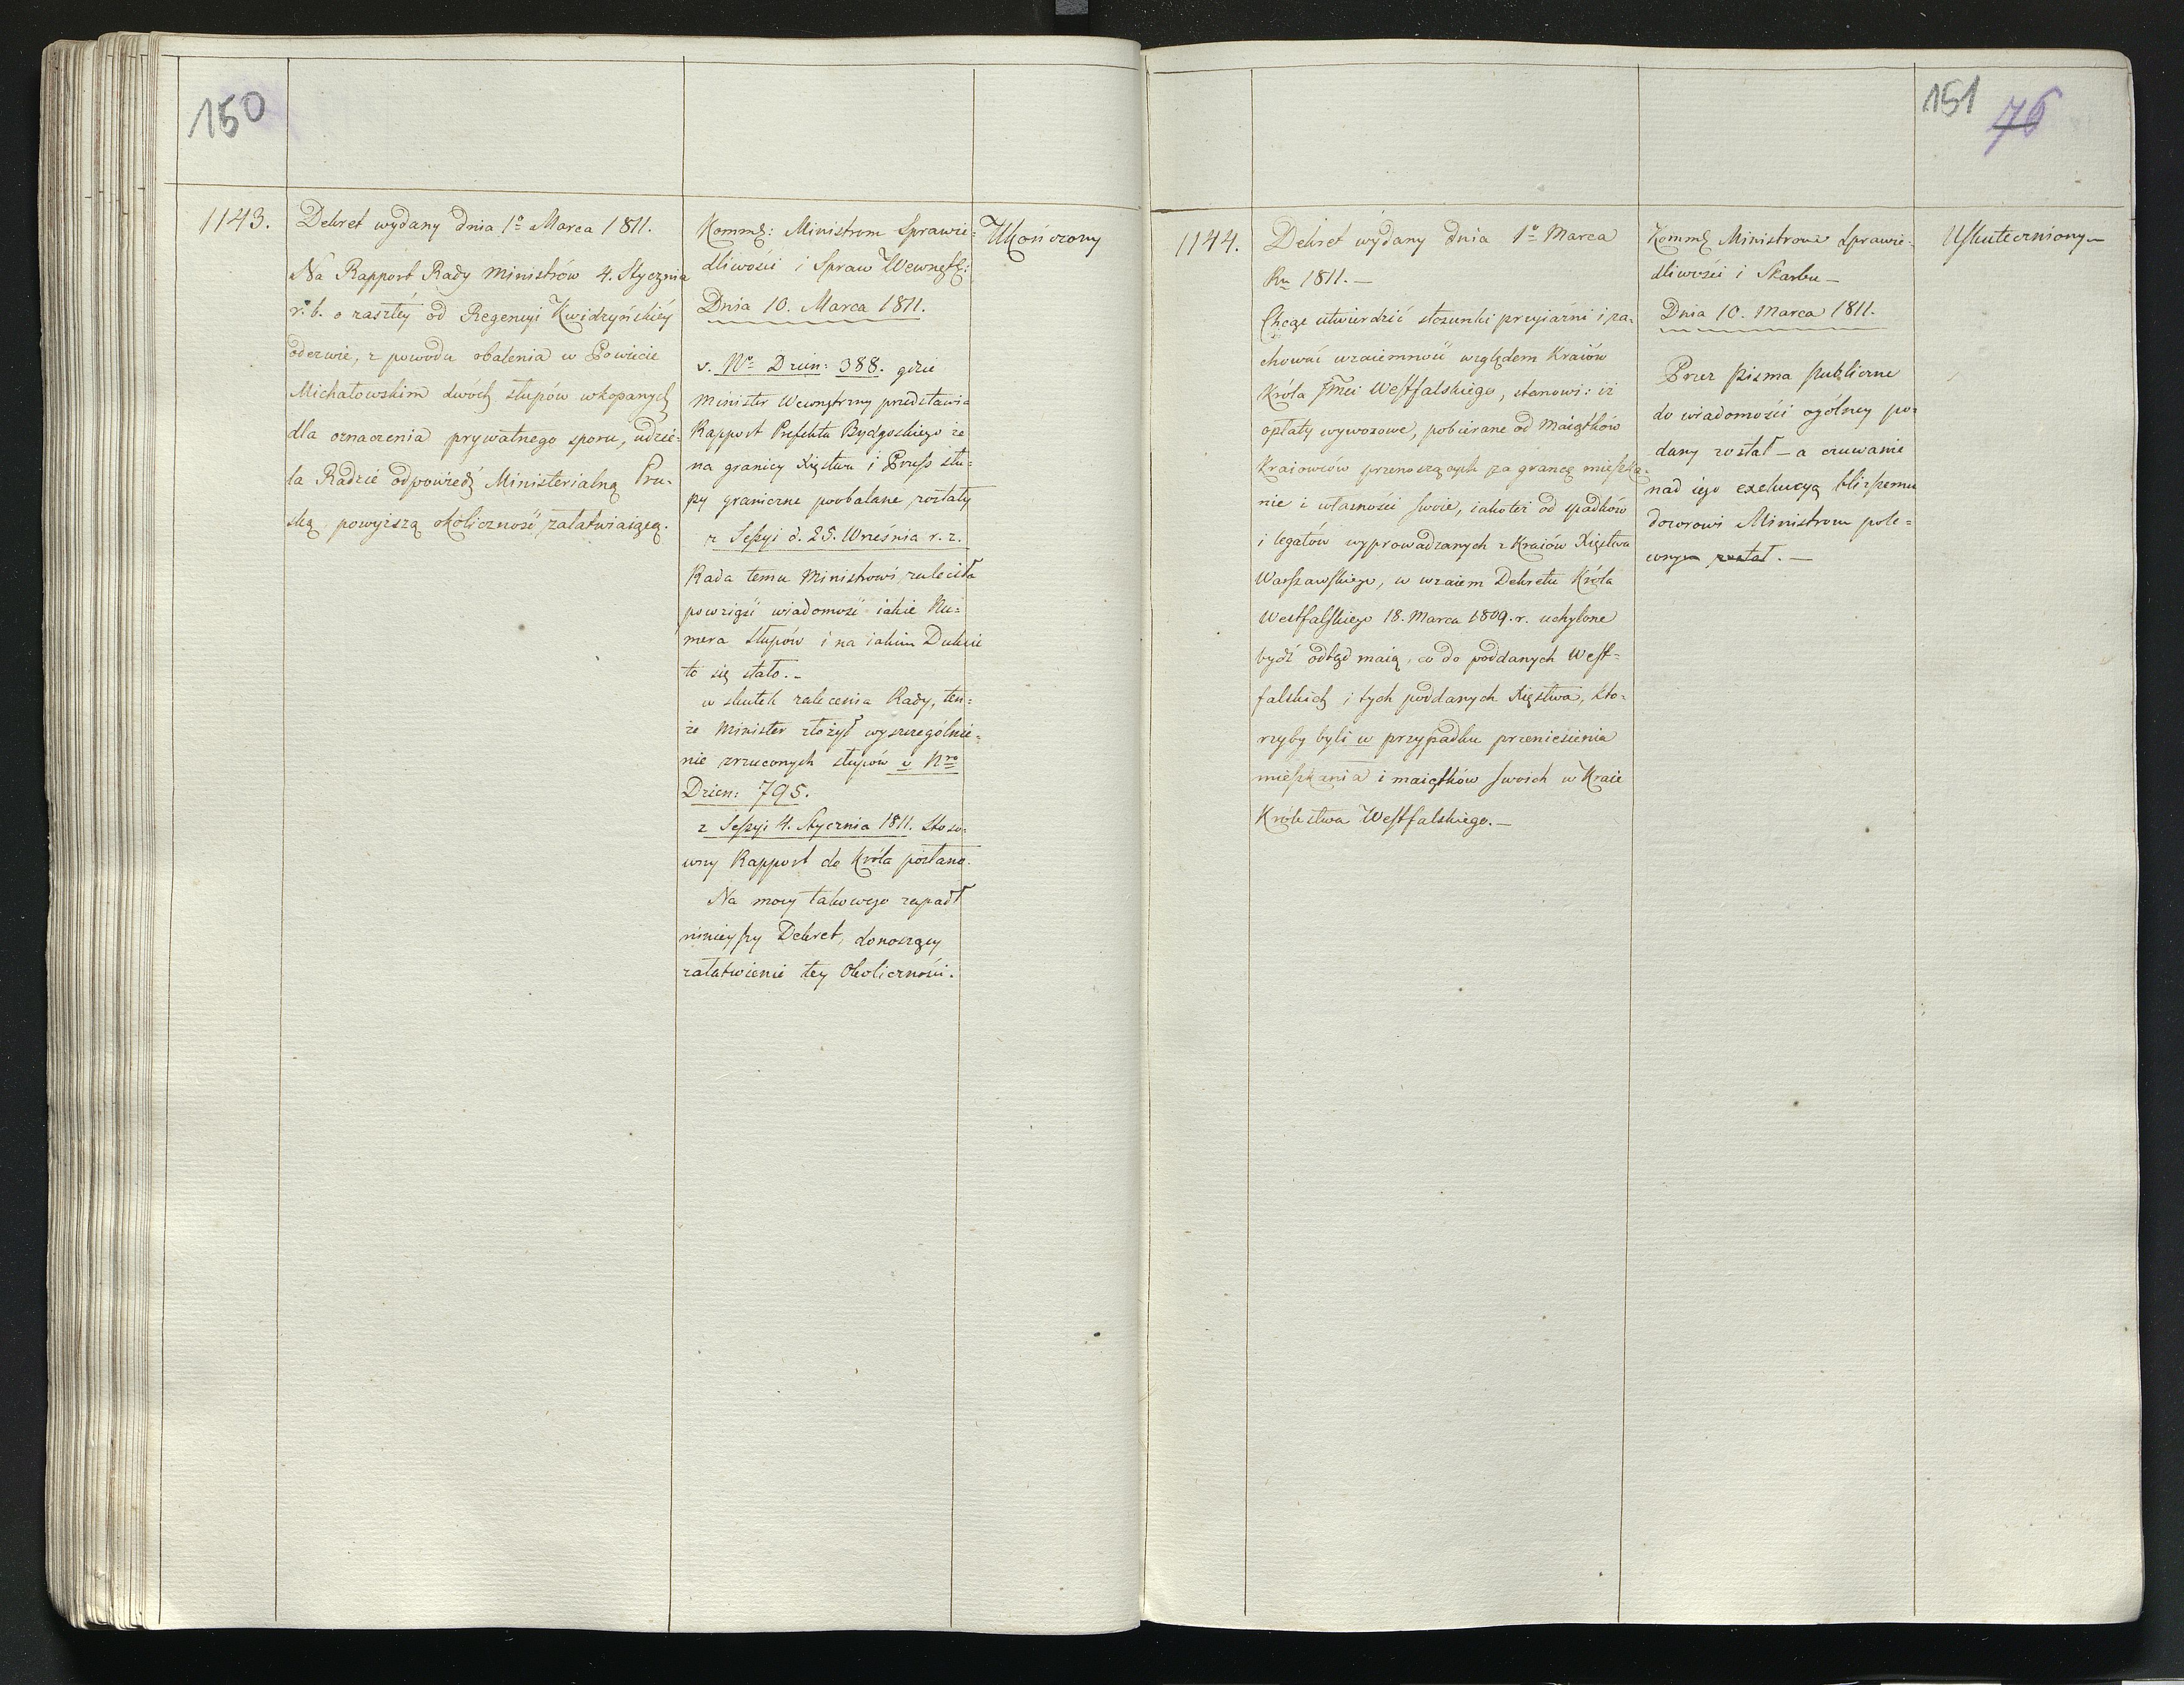 150
1143.
Dekret wydany dnia 1º Marca 1811.
Na Rapport Rady Ministrów 4. Stycznia
r. b. o zaszłéy od Regencyi Kwidzyńskiéy
odezwie, z powodu obalenia w Powiecie
Michałowskim dwóch słupów wkopanych
dla oznaczenia prywatnego sporu, udzie=
la Radzie odpowiedź Ministerialną Pru=
ską powyższą okoliczność załatwiaiącą.
Kommk: Ministrom Sprawie=
dliwości i Spraw Wewnętk:
Dnia 10. Marca 1811.
v. Nº Dzien: 388. gdzie
Minister Wewnętrzny przedstawia
Rapport Prefekta Bydgoskiego że
na granicy Xięstwa i Pruss słu=
py graniczne poobalane zostały
z Sessyi d. 25. Września r. z.
Rada temu Ministrowi zaleciła
powziąść wiadomość iakie Nu=
mera słupów i na iakim Dukcie
to się stało. -
w skutek zalecenia Rady, ten=
że Minister złożył wyszczególnie=
nie zrzuconych słupów v Nro
Dzien: 795.
z Sessyi 4. Stycznia 1811. stoso=
wny Rapport do Króla posłano.
Na mocy takowego zapadł
ninieyszy Dekret, donoszący
załatwienie tey Okoliczności.
Ukończony
151 76
1144.
Dekret wydany dnia 1º Marca
Ru 1811. —
Chcąc utwierdzić stosunki przyiaźni i za=
chować wzaiemność względem Kraiów
Króla Jmci Westfalskiego, stanowi: iż
opłaty wywozowe, pobierane od Maiątków
Kraiowców przenoszących za granicę mieszka=
nie i własności swoie, iakoteż od spadków
i legatów wyprowadzanych z Kraiów Xięstwa
Warszawskiego, w wzaiem Dekretu Króla
Westfalskiego 18. Marca 1809. r. uchylone
bydź odtąd maią, co do poddanych West=
falskich i tych poddanych Xięstwa, któ=
rzyby byli w przypadku przeniesienia
mieszkania i maiątków swoich w Kraie
Królestwa Westfalskiego. —
Kommk Ministrowi Sprawie=
dliwości i Skarbu —
Dnia 10. Marca 1811.
Przez pisma publiczne
do wiadomości ogólney po=
dany został — a czuwanie
nad iego exekucyą bliższemu
dozorowi Ministrom pole=
conym został. —
Uskuteczniony —